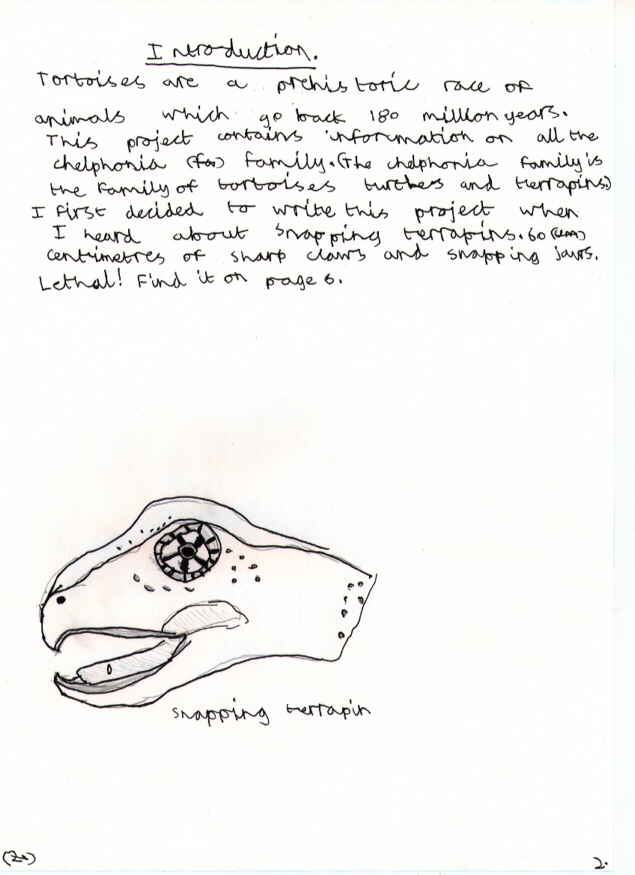 Introduction.
Tortoises are a prehistoric race of
animals which go back 180 million years.
This project contains information on all the
chelphonia (fam) family. (The chelphonia family is
the family of tortoises turtles and terrapins.)
I first decided to write this project when
I heard about snapping terrapins. 60 (cm)
centimetres of sharp claws and snapping jaws.
Lethal! Find it on page 6.
snapping terrapin
2.